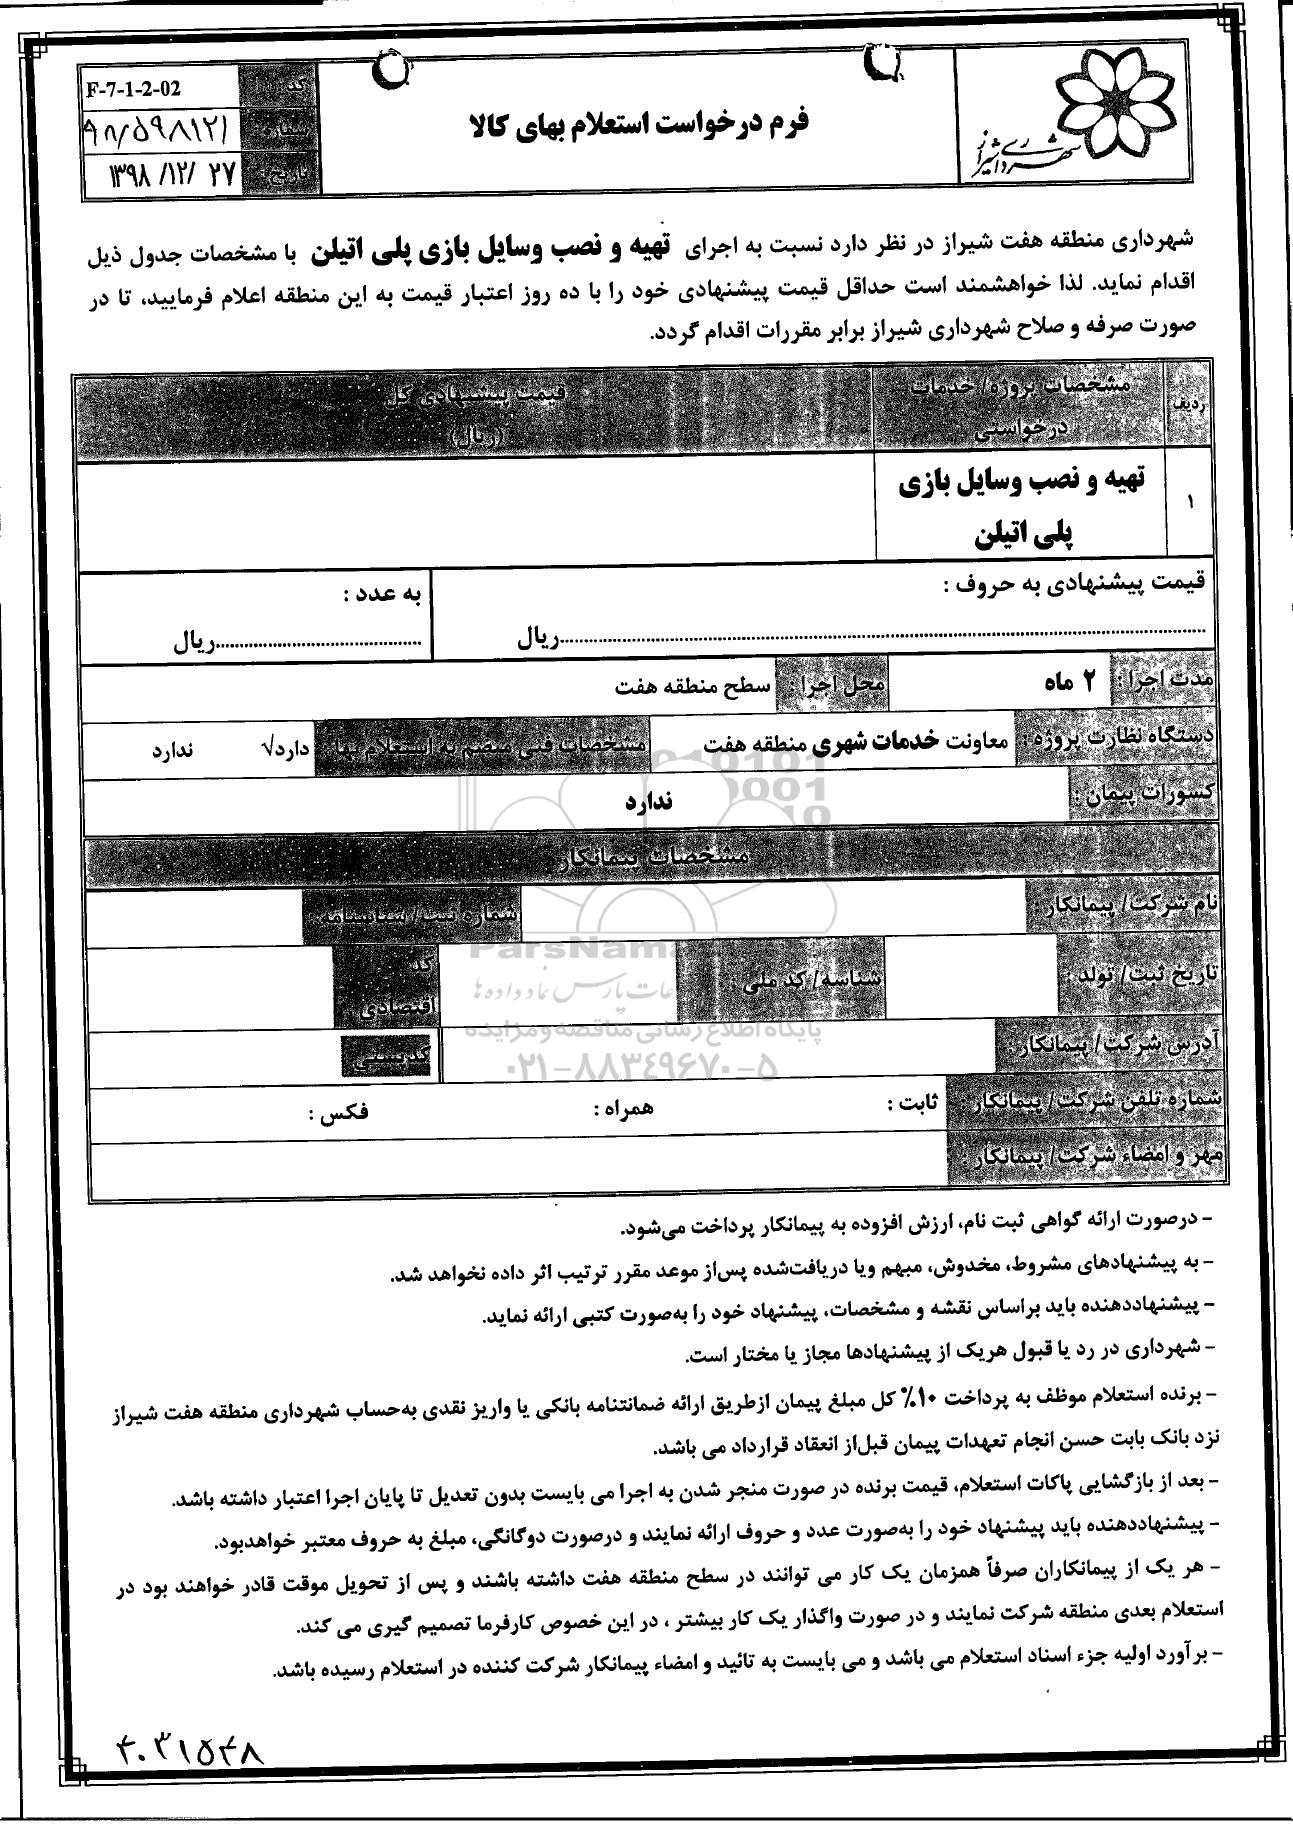 شهرداری شیراز
فرم درخواست استعلام بهای کالا
کد F-7-1-2-02
شماره: ۹۸/۵۹۸۱۲۱
تاریخ: ۱۳۹۸/۱۲/ ۲۷
شهرداری منطقه هفت شیراز در نظر دارد نسبت به اجرای تهیه و نصب وسایل بازی پلی اتیلن با مشخصات جدول ذیل
اقدام نماید. لذا خواهشمند است حداقل قیمت پیشنهادی خود را با ده روز اعتبار قیمت به این منطقه اعلام فرمایید، تا در
صورت صرفه و صلاح شهرداری شیراز برابر مقررات اقدام گردد.
ردیف مشخصات پروژه/ خدمات قیمت پیشنهادی کل
درخواستی (ریال)
۱ تهیه و نصب وسایل بازی
پلی اتیلن
قیمت پیشنهادی به حروف : به عدد :
ریال ریال
مدت اجرا : ۲ ماه محل اجرا : سطح منطقه هفت
دستگاه نظارت پروژه : معاونت خدمات شهری منطقه هفت مشخصات فنی منضم به استعلام بها: دارد√ ندارد
کسورات پیمان : ندارد
مشخصات پیمانکار
نام شرکت/ پیمانکار : شماره ثبت/ شناسنامه:
تاریخ ثبت/ تولد : شناسه/ کد ملی : کد
اقتصادی
آدرس شرکت/ پیمانکار: کدپستی
شماره تلفن شرکت/ پیمانکار : ثابت : همراه : فکس :
مهر و امضاء شرکت/ پیمانکار :
ParsNama
پایگاه اطلاع رسانی مناقصه و مزایده
۰۲۱-۸۸۳۴۹۶۷۰-۵
- درصورت ارائه گواهی ثبت نام، ارزش افزوده به پیمانکار پرداخت می‌شود.
- به پیشنهادهای مشروط، مخدوش، مبهم ویا دریافت‌شده پس‌از موعد مقرر ترتیب اثر داده نخواهد شد.
- پیشنهاددهنده باید براساس نقشه و مشخصات، پیشنهاد خود را به‌صورت کتبی ارائه نماید.
- شهرداری در رد یا قبول هریک از پیشنهادها مجاز یا مختار است.
- برنده استعلام موظف به پرداخت ۱۰٪ کل مبلغ پیمان ازطریق ارائه ضمانتنامه بانکی یا واریز نقدی به‌حساب شهرداری منطقه هفت شیراز
نزد بانک بابت حسن انجام تعهدات پیمان قبل‌از انعقاد قرارداد می باشد.
- بعد از بازگشایی پاکات استعلام، قیمت برنده در صورت منجر شدن به اجرا می بایست بدون تعدیل تا پایان اجرا اعتبار داشته باشد.
- پیشنهاددهنده باید پیشنهاد خود را به‌صورت عدد و حروف ارائه نمایند و درصورت دوگانگی، مبلغ به حروف معتبر خواهدبود.
- هر یک از پیمانکاران صرفاً همزمان یک کار می توانند در سطح منطقه هفت داشته باشند و پس از تحویل موقت قادر خواهند بود در
استعلام بعدی منطقه شرکت نمایند و در صورت واگذار یک کار بیشتر ، در این خصوص کارفرما تصمیم گیری می کند.
- برآورد اولیه جزء اسناد استعلام می باشد و می بایست به تائید و امضاء پیمانکار شرکت کننده در استعلام رسیده باشد.
۴۰۳۱۵۴۸